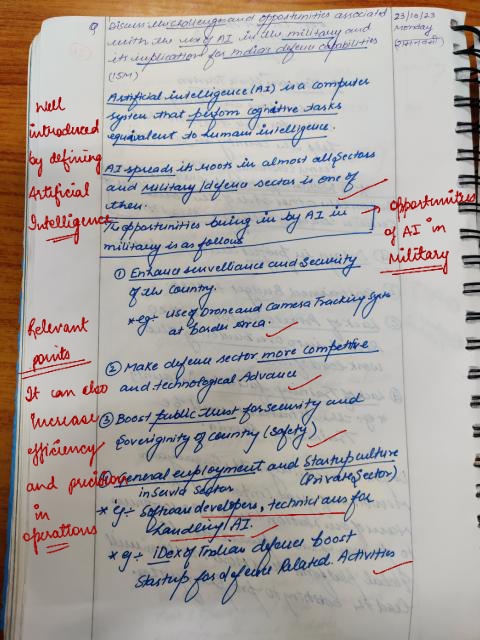 Q Discuss the challenges and opportunities associated
with the use of AI in the military and
its implications for India's defence capabilities
(15M)
23/10/23
Monday
Artificial intelligence (AI) is a computer
system that perform cognitive tasks
equivalent to human intelligence.
Well
introduced
by defining
Artificial
Intelligence
AI spreads its roots in almost all sectors
and military/defence sector is one of
them.
To opportunities being in by AI in
military is as follows
opportunities
of AI in
Military
① Enhance surveillance and Security
of the Country.
* eg:- Use of Drone and Camera Tracking System
at Border Area.
Relevant
points
② Make defence sector more competitive
and technological Advance
It can also
Increase
efficiency
and
in
operations
③ Boost public trust for security and
Soveriginity of country (Safety)
④ General employment and Startup culture
in Service Sector (Private Sector)
* eg:- Software developers, technicians for
handling AI.
* eg:- iDex of Indian defence boost
Startup for defence Related Activities